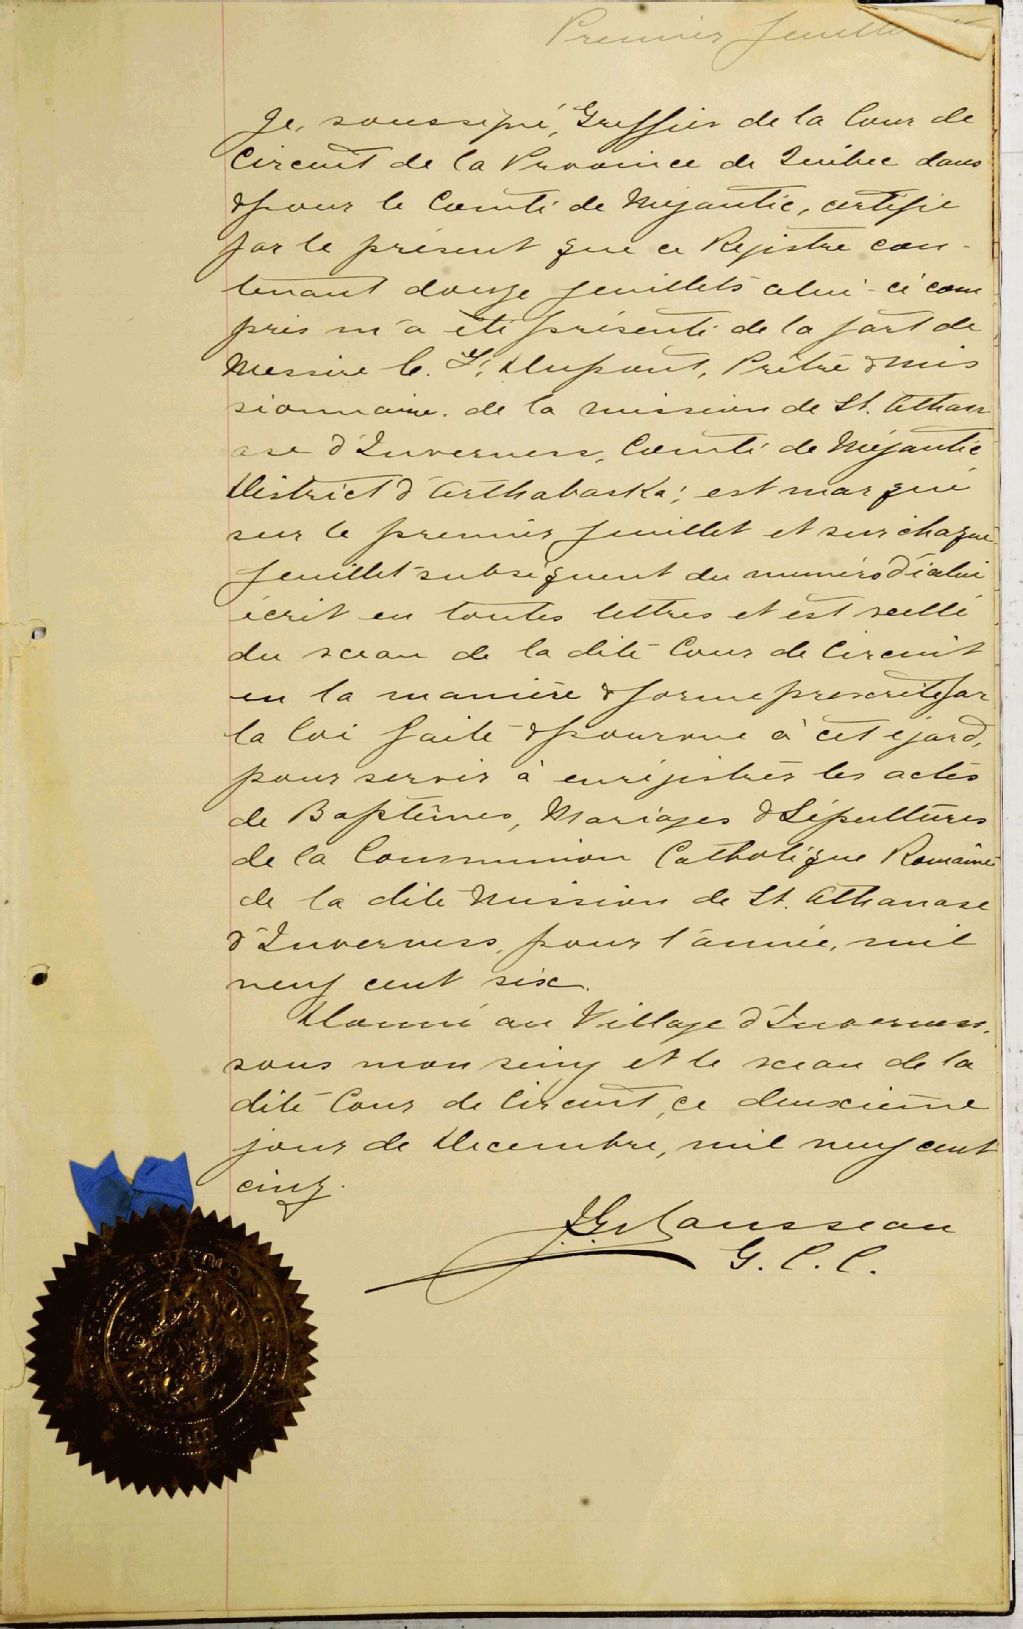 Premier feuillet
Je, soussigné, Greffier de la Cour de
Circuit de la Province de Québec dans
& pour le Comté de Mégantic, certifie
par le présent que ce Registre con-
tenant douze feuillets celui-ci com
pris m'a été présenté de la part de
Messire C. Dupont, Prêtre & mis
sionnaire. de la mission de St. Athan
ase d'Inverness, Comté de Mégantic
District d'Arthabaska, est marqué
sur le premier feuillet et sur chaque
feuillet subséquent du numéro d'icelui
écrit en toutes lettres et est scellé
du sceau de la dite Cour de Circuit
en la manière & forme prescrite par
la loi faite & pourvue à cet égard,
pour servir à enrégistrer les actes
de Baptêmes, Mariages & Sépultures
de la Communion Catholique Romaine
de la dite Mission de St. Athanase
d'Inverness, pour l'année, mil
neuf cent six.
Donné au Village d'Inverness.
sous mon seing et le sceau de la
dite Cour de Circuit, ce deuxième
jour de Décembre, mil neuf cent
cinq.
Rousseau
G. C. C.